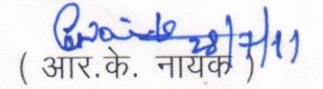 28/7/11
( आर.के. नायक )